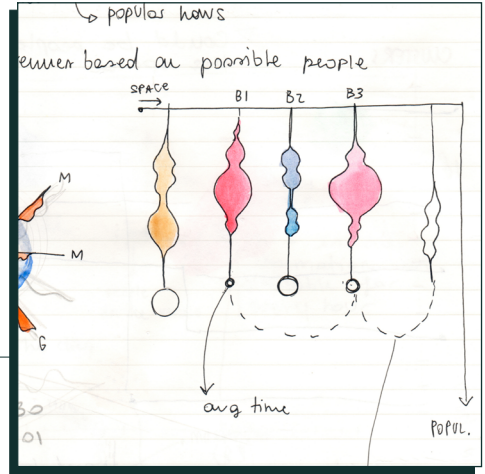 popular hours
based on possible people
SPACE
B1 B2 B3
M
M
G
avg time
POPUL.
30
01